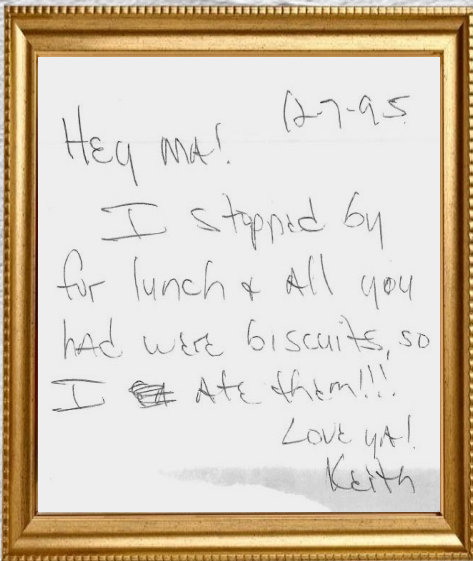 12-7-95
Hey MA!
I stopped by
for lunch & All you
had were biscuits, so
I Ate them!!!
Love ya!
Keith